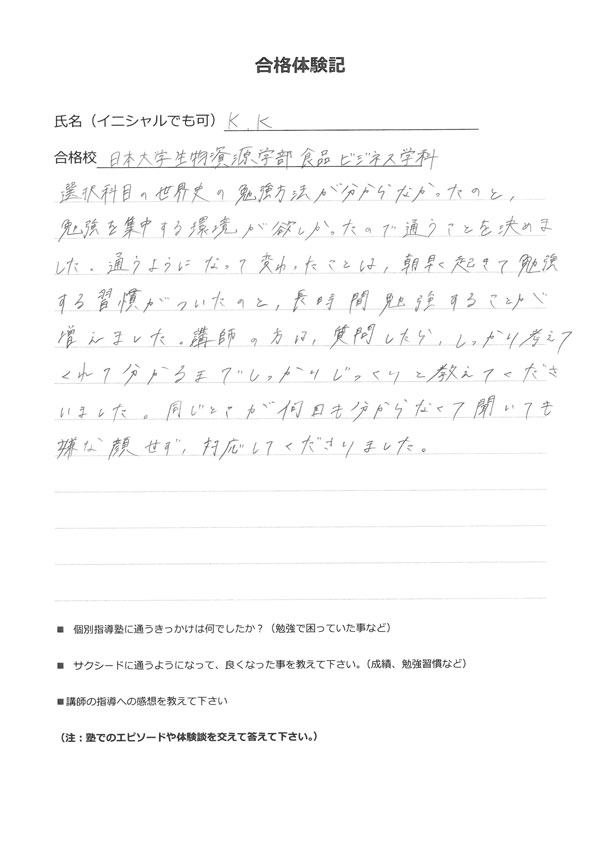 合格体験記
氏名（イニシャルでも可） K.K
合格校 日本大学生物資源学部 食品ビジネス学科
選択科目の世界史の勉強方法が分からなかったのと，
勉強を集中する環境が欲しかったので通うことを決めま
した。通うようになって変わったことは，朝早く起きて勉強
する習慣がついたのと，長時間勉強することが
増えました。講師の方は，質問したら，しっかり考えて
くれて分かるまでしっかりじっくりと教えてくださ
いました。同じとこが何回も分からなくて聞いても
嫌な顔せず，対応してくださりました。
■ 個別指導塾に通うきっかけは何でしたか？（勉強で困っていた事など）
■ サクシードに通うようになって、良くなった事を教えて下さい。（成績、勉強習慣など）
■講師の指導への感想を教えて下さい
（注：塾でのエピソードや体験談を交えて答えて下さい。）